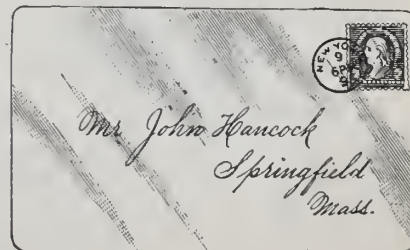 NEW YO
9
6 P
Mr John Hancock
Springfield
Mass.